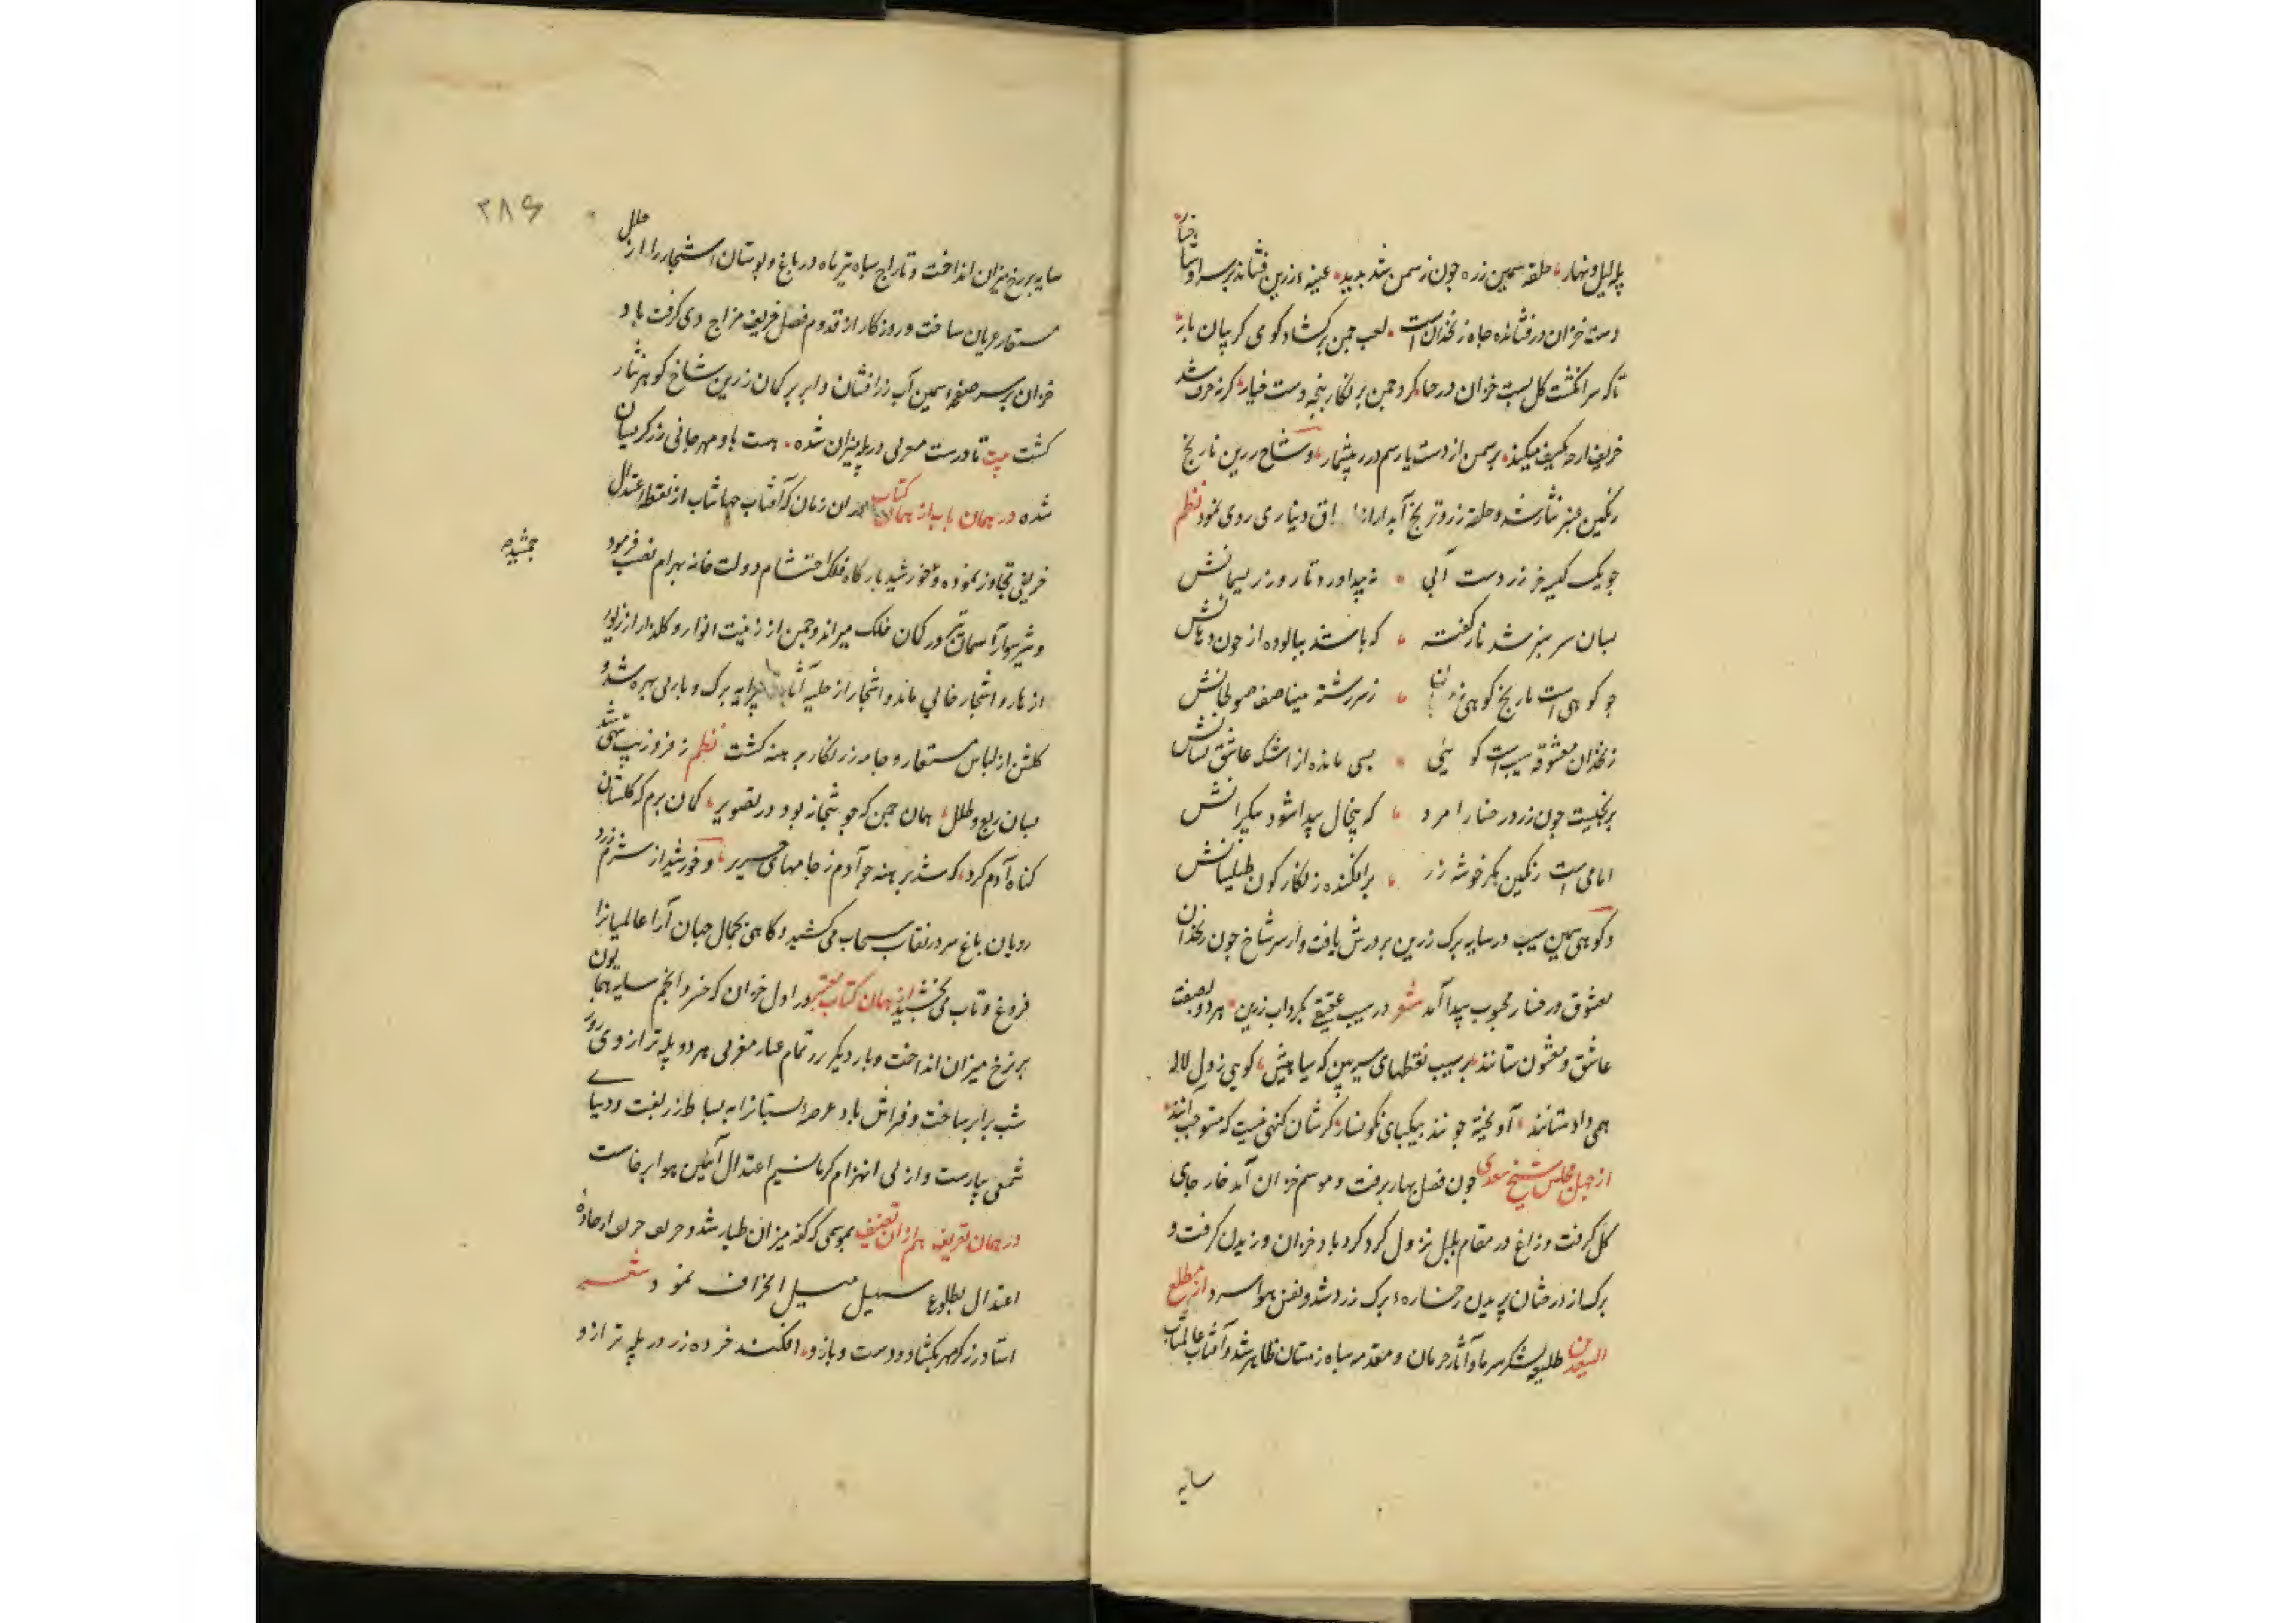 پله لیل و نهار حلقه سیمین زره چون ز سمن شد پدید عیبه زرین فشاند بر سر او شاخسار
دست خزان در فشانده چاه زنخدانست لعب چمن بر گشاد گوی گریبان بار
تا که سر انگشت گل بست خزان در حنا کرد چمن پر نگار پنجه دست خیار گرنه خرف شد
خریف از چه میکند بر سمن از دست یار سم درر بیشمار و شاخ زرین نارنج
رنگین عنبر نثار شد و حلقه زر و ترنج آبدار از اوراق دیناری روی نمود نظم
چو یک کیسه زر دست آبی نه پیدا درو تار و زر ریسمانش
بسان سر سبز شد نار کفته که باشد بیالوده از خون دهانش
چو گوهیست نارنج گوهی ز سررشته مینا صفه صولجانش
زنخدان معشوقه سیبست گویی بسی مانده از اشک عاشق نشانش
ترنجیست چون زر رخسار امرد که بیخال پیدا شود بیکرانش
امامیست رنگین مگر خوشه رز برافکنده زنگارگون طیلسانش
و گوهی سیمین سیب در سایه برگ زرین پرورش یافت و از سر شاخ چون زنخدان
معشوق و رخسار محبوب پیدا آمد شعر در سیب عقیقی بگرداب زرین هر دو بصفت
عاشق و معشوق ستانند بر سیب نقطهای سیه بین که سیاهیش گویی ز دل لاله
همی داد ستانند آویخته چونند بیکپای نگونسار گرشان گنهی نیست که مستوجب آنند
از چهل مجلس شیخ سعدی چون فصل بهار برفت و موسم خزان آمد خار جای
گل گرفت و زاغ در مقام بلبل نزول کرد گرد باد خزان وزیدن گرفت و
برگ از درختان پریدن رخساره برگ زرد شد و نفس هوا سرد از مطلع
السعدین طلیعه لشکر سرما و آثار حرمان و مقدمه سپاه زمستان ظاهر شد و آفتاب عالمتاب
سایه
۲۸۶
سایه بر برج میزان انداخت و تاراج سپاه تیرماه در باغ و بوستان اشجار را از حلل
مستعار عریان ساخت و روزگار از قدوم فصل خریف مزاج دی گرفت باد
خزان بر سر صفحه سیمین آب زرافشان و ابر بر کمان زرین شاخ گوهرنثار
گشت بیت تا درست مغربی در پله میزان شده هست باد مهرجانی زر گر بستان
شده در همان باب از همان کتاب در ان زمان که آفتاب جهانتاب از نقطه اعتدال
خریفی تجاوز نموده و خورشید بارگاه فلک احتشام دولت خانه بهرام نصب فرمود
جمشید
و شهسوار آسمان تیر در کمان فلک میراند و چمن از زینت انوار و گلزار از زیور
ازهار و اشجار خالی ماند و اشجار از حلیه پیرایه برگ و بار بی بهره شد و
گلشن از لباس مستعار و جامه زرنگار برهنه گشت نظم ز فر و زیب تهی شد
بسان ربع و طلل همان چمن که چو بتخانه بود در تصویر گمان برم که گلستان
گناه آدم کرد که شد برهنه چو آدم ز جامهای حریر و خورشید از شرم زرد
رویان باغ سر در نقاب سحاب می کشید و گاهی بجمال جهان آرا عالمیانرا
فروغ و تاب می بخشید از همان کتاب معتبر در اول خزان که خسرو انجم سایه همایون
بر برج میزان انداخت و بار دیگر زر تمام عیار مغربی هر دو پله ترازوی روز
شب برابر ساخت و فراش باد عرصه بستانرا به بساط زربفت و دیبای
شمعی بیاراست و از پی انهزام گرما نسیم اعتدال آئین هوا برخاست
در همان تعریف هم از ان تصنیف بموسمی که کفه میزان طیار شد و حریف خریف از جاده
اعتدال بطلوع سهیل مسیل انحراف نمود شعر
استاد زرگر مهر بگشاد دو دست و بازو افکند خرده زر در پله ترازو